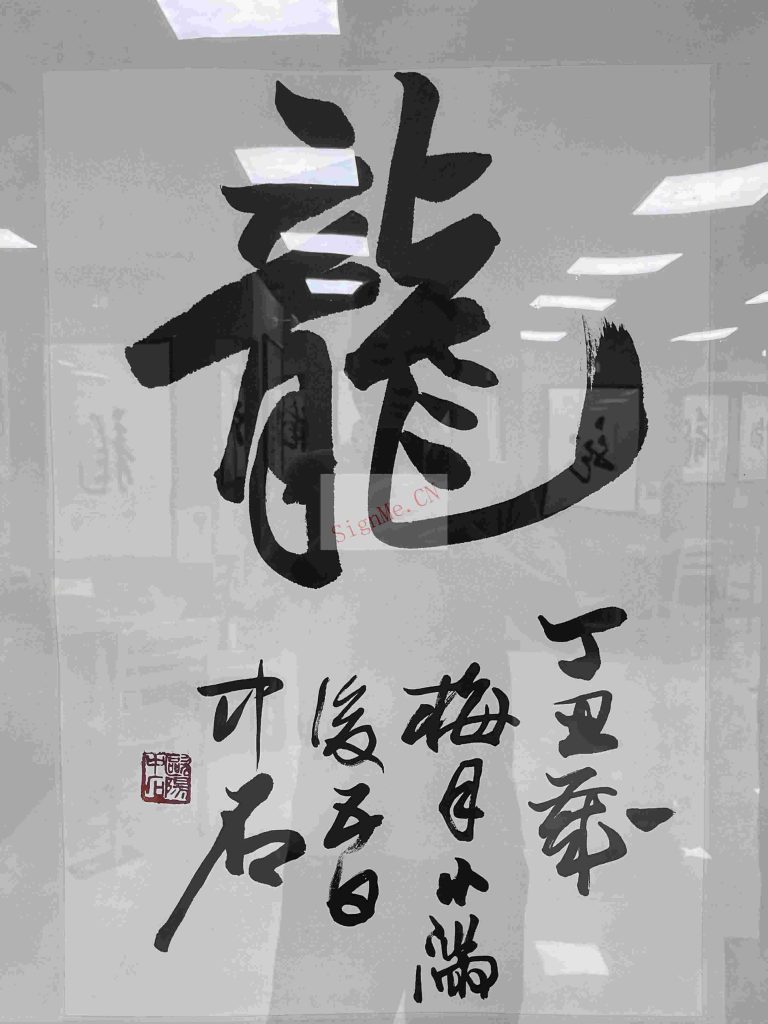 龍
丁丑歲
梅月小滿
後五日
中石
歐陽中石
SignMe.CN